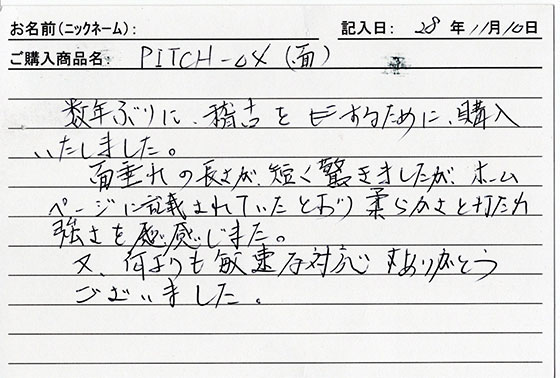 お名前(ニックネーム): 記入日: 28 年 11月 10日
ご購入商品名: PITCH-04 (面)
数年ぶりに、稽古をするために、購入
いたしました。
面垂れの長さが、短く驚きましたが、ホーム
ページに記載されていたとおり柔らかさと打たれ
強さを感じました。
又、何よりも敏速な対応ありがとう
ございました。